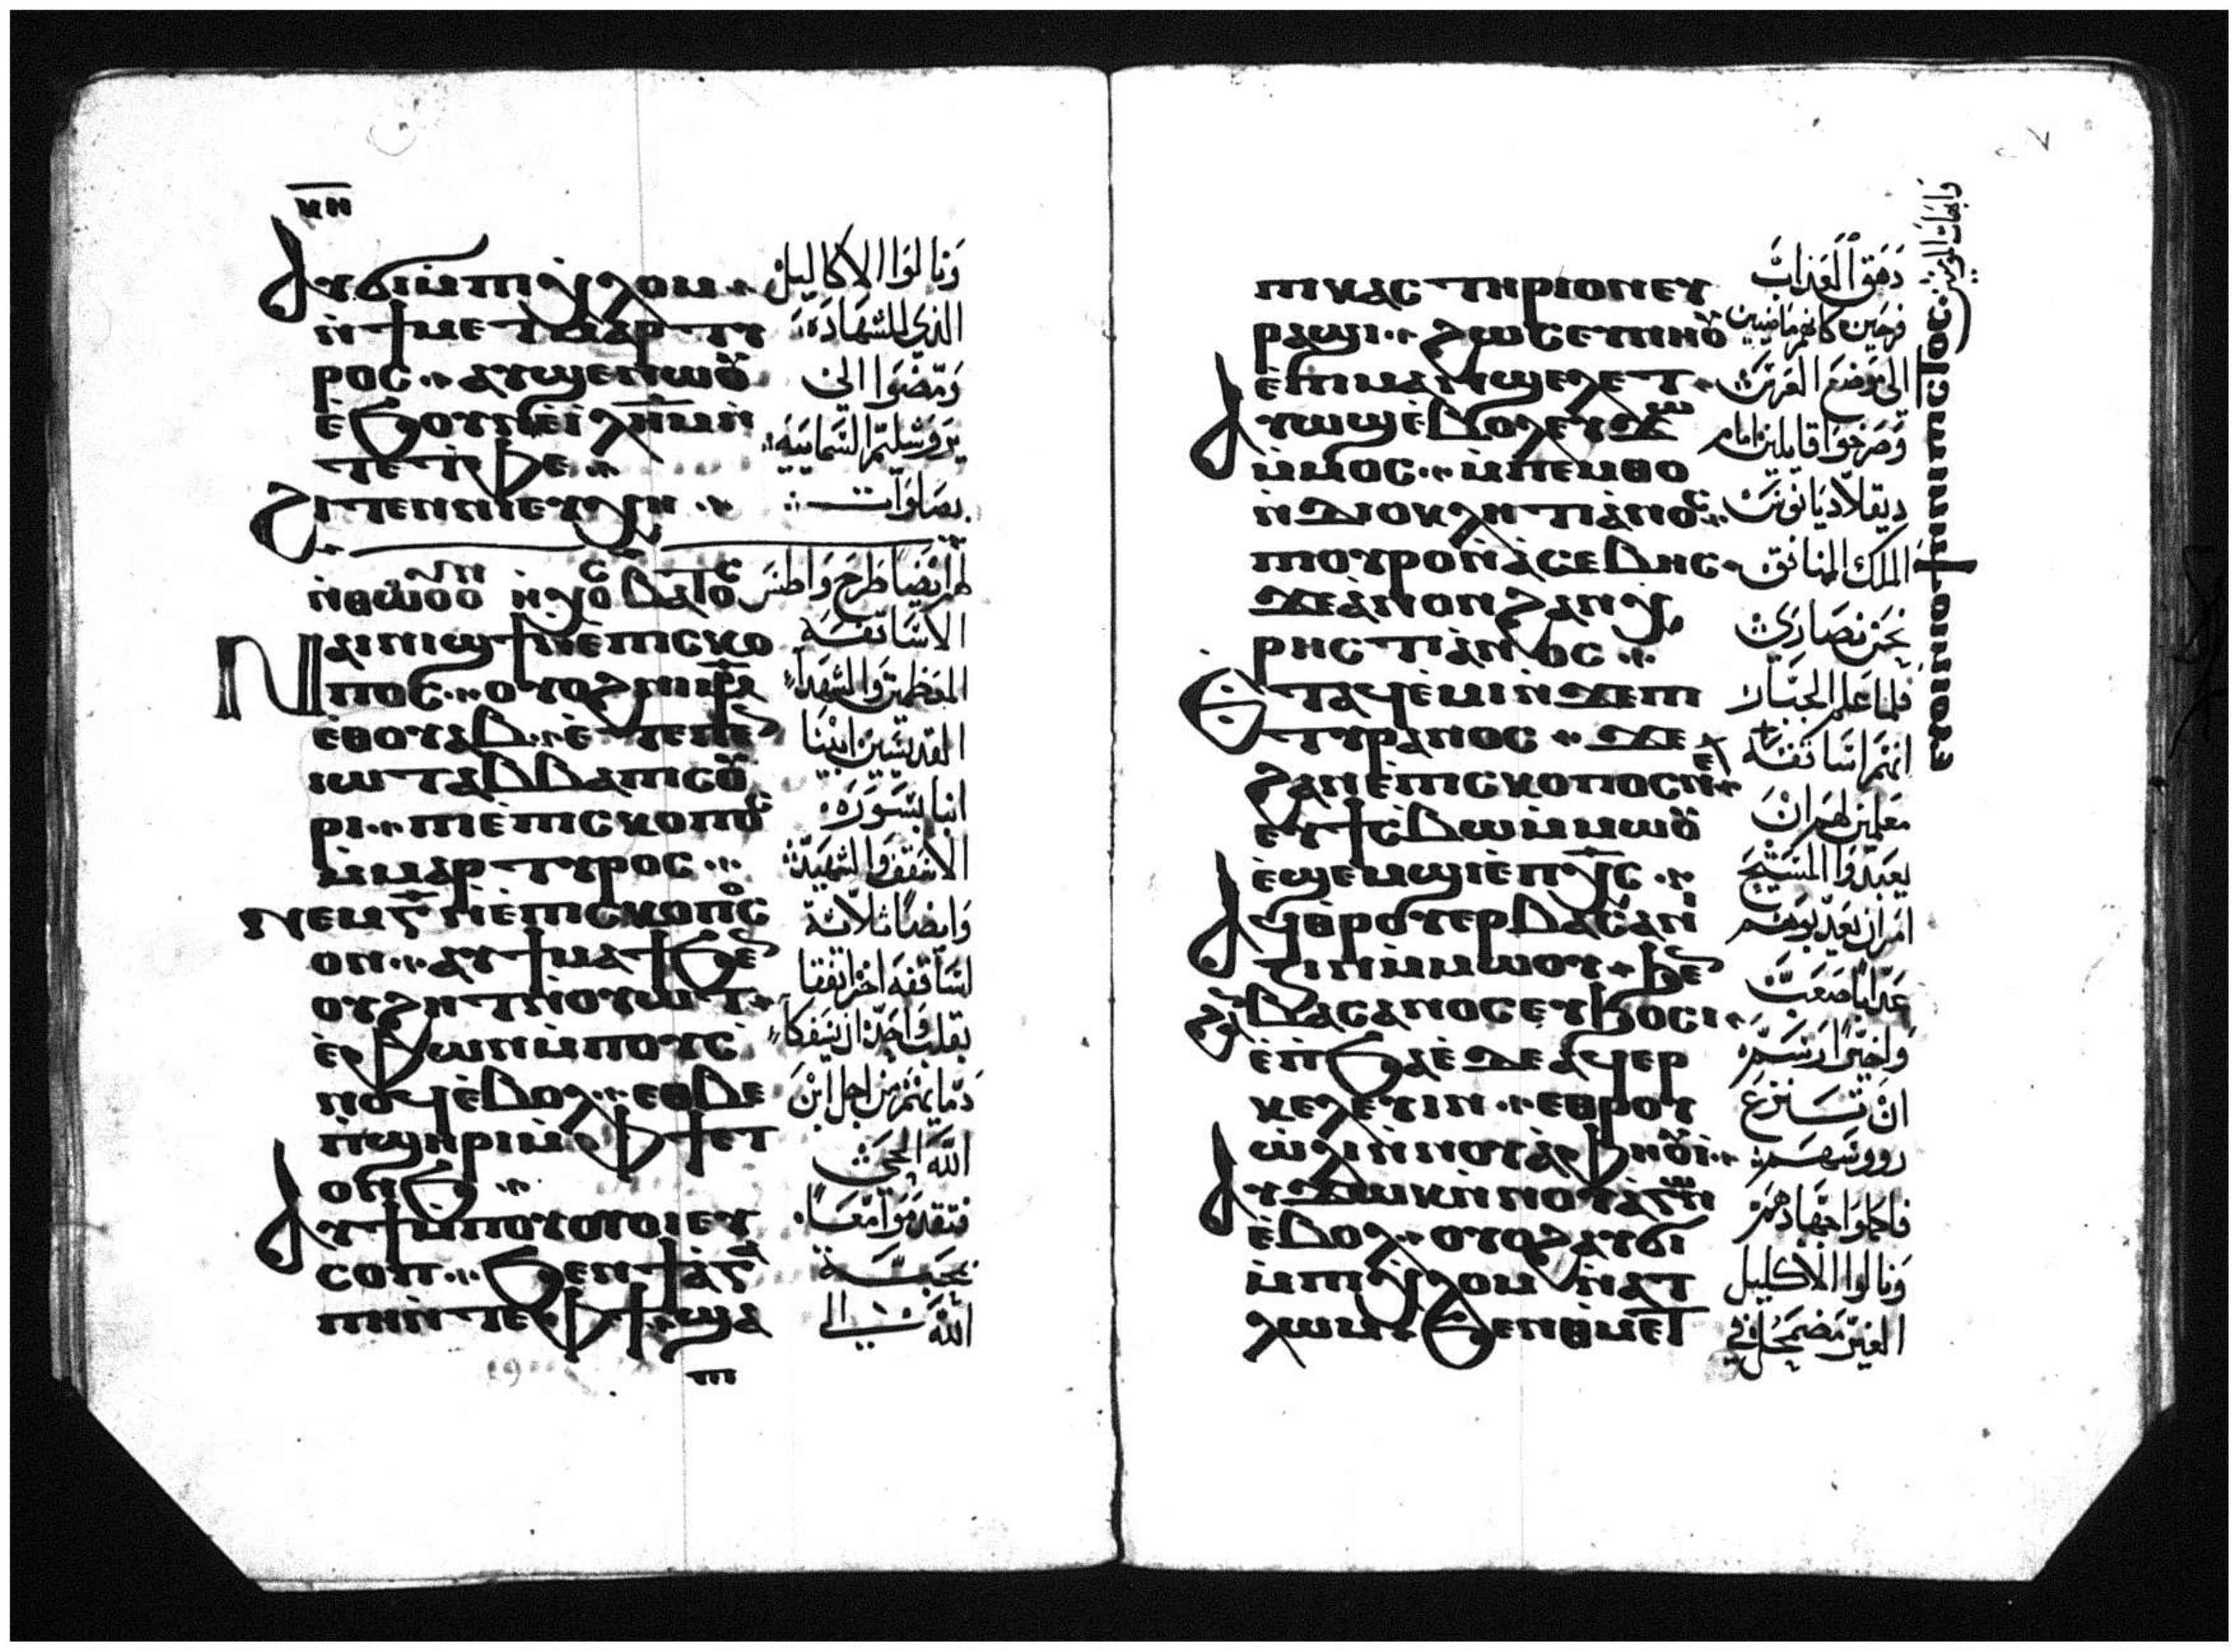 ⲕⲏ
ⲁⲩϭⲓⲙⲡⲓⲭⲗⲟⲙ
ⲛ̀ϯⲙⲉⲧⲙⲁⲣⲧⲩ
ⲣⲟⲥ ⲁⲩϣⲉⲛⲱⲟⲩ
ⲉ̀ϧⲟⲩⲛⲉ̀ⲓ̀ⲗ̅ⲏ̅ⲙ̅ⲛ̀
ⲧⲉⲧⲫⲉ
ϩⲓⲧⲉⲛⲛⲓⲉⲩⲭⲏ
ⲛ̀ⲑⲱⲟⲩ
ⲛⲁⲓⲛⲓϣϯⲛ̀ⲉⲡⲓⲥⲕⲟ
ⲡⲟⲥ ⲟⲩⲟϩⲙ̀ⲙ̅ⲣ̅
ⲉⲑⲟⲩⲁⲃ ⲉ̀ⲧⲉⲡⲉⲛ
ⲓⲱⲧⲁⲃⲃⲁⲡⲓⲥⲟⲩ
ⲣⲓ ⲡⲓⲉ̀ⲡⲓⲥⲕⲟⲡⲟⲥ
ⲙ̀ⲙⲁⲣⲧⲩⲣⲟⲥ
ⲛⲉⲙⲅ̅ⲛ̀ⲉ̀ⲡⲓⲥⲕⲟⲡⲟⲥ
ⲟⲛ ⲁⲩϯⲙⲁϯϧⲉⲛ
ⲟⲩϩⲏⲧⲛ̀ⲟⲩⲱⲧ
ⲉ̀ⲫⲱⲛⲙ̀ⲡⲟⲩⲥ̀
ⲛⲟϥⲉ̀ⲃⲟⲗ ⲉⲑⲃⲉ
ⲡ̀ϣⲏⲣⲓⲙ̀ⲫϯⲉⲧ
ⲟⲛϧ
ⲁⲩϯⲙ̀ⲡⲟⲩⲟⲩⲟⲓⲉⲩ
ⲥⲟⲡ ϧⲉⲛϯⲁ̀ⲅⲁ
ⲡⲏⲛ̀ⲧⲉⲫϯ ϣⲁ
ⲡⲓ
وَنالوا الاكاليل
الذي للشهادة
وَمضوا الى
يروشليم السمايية
بصلوات
لهم ايضًا طرح واطس
الاساقفه
المعظمين والشهدا
القديسين ابينا
انبا بسوره
الاسقف والشهيد
وايضًا ثلاثة
اساقفه اخر اتفقا
بقلب واحد ان يسفكا
دمايهم من اجل ابن
الله الحي
فتقدموا معًا
بمحبة
الله الى
ⲡⲓⲕⲁⲥⲧⲏⲣⲓⲟⲛⲉⲩ
ⲣⲁϣⲓ ϩⲱⲥⲉⲩⲙⲏⲟⲩ
ⲉ̀ⲡⲓⲙⲁⲛ̀ϣⲉⲗⲉⲧ
ⲁⲩⲱϣⲉ̀ⲃⲟⲗⲉⲩϫⲱ
ⲙ̀ⲙⲟⲥ ⲙ̀ⲡⲉⲙⲑⲟ
ⲛ̀ⲇⲓⲟⲕⲗⲏⲧⲓⲁⲛⲟⲥ
ⲡⲟⲩⲣⲟⲛ̀ⲁⲥⲉⲃⲏⲥ
ϫⲉⲁⲛⲟⲛϩⲁⲛⲭ
ⲣⲏⲥⲧⲓⲁⲛⲟⲥ
ⲉⲧⲁϥⲉ̀ⲙⲓⲛ̀ϫⲉⲡⲓ
ⲧⲩⲣⲁⲛⲟⲥ ϫⲉ
ϩⲁⲛⲉ̀ⲡⲓⲥⲕⲟⲡⲟⲥⲛⲉ
ⲉⲩϯⲥⲃⲱⲙ̀ⲙⲱⲟⲩ
ⲉ̀ϣⲉⲙϣⲓⲉ̀ⲡⲭ̅ⲥ̅
ⲁϥⲑⲣⲟⲩⲉⲣⲃⲁⲥⲁⲛ
ⲓⲍⲓⲛⲙ̀ⲙⲱⲟⲩ ϧⲉⲛ
ϩⲁⲛⲃⲁⲥⲁⲛⲟⲥⲉⲩϧⲟⲥⲓ
ⲉ̀ⲡϧⲁⲉ̀ ⲇⲉⲁϥⲉⲣ
ⲕⲉⲗⲉⲩⲓⲛ ⲉⲑⲣⲟⲩ
ⲱ̀ⲗⲓⲛ̀ⲛⲟⲩⲁ̀ⲫⲏⲟⲩⲓ̀
ⲁⲩϫⲱⲕⲛ̀ⲛⲟⲩⲁ̀ⲅⲱⲛ
ⲉ̀ⲃⲟⲗ ⲟⲩⲟϩⲁⲩϭⲓ
ⲙ̀ⲡⲓⲭⲗⲟⲙ ⲛ̀ⲁⲧ
ⲗⲱⲙ ϧⲉⲛⲑⲙⲉⲧ
دهق العذاب
فرحين كانهم ماضيين
الى موضع العرس
وصرخوا قايلين امام
ديقلاديانوس
الملك المنافق
نحن نصارى
فلما علم الجبار
انهم اساقفه
معلمين لهم ان
يعبدوا المسيح
امر ان يعذبوهم
عذابا صعب
واخيرًا رسم
ان تنزع
رووسهم
فاكملوا جهادهم
ونالوا الاكليل
الغير مضمحل في